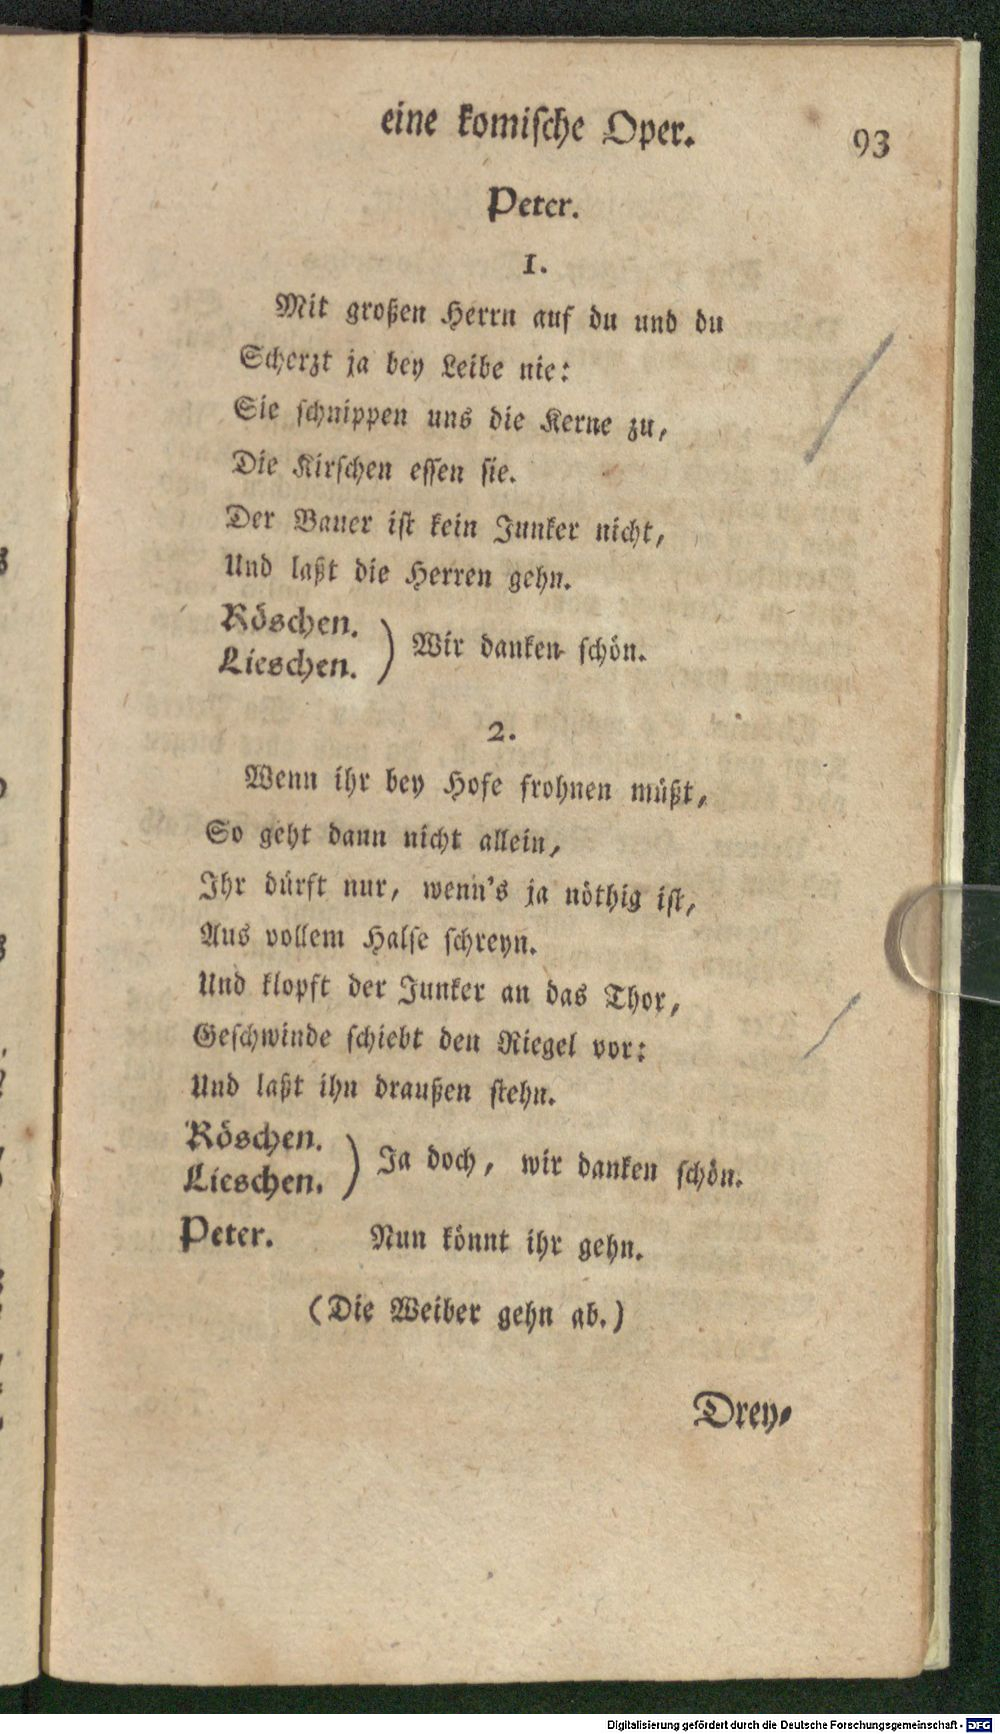 eine komiſche Oper.
93
Peter.
1.
Mit großen Herrn auf du und du
Scherzt ja bey Leibe nie:
Sie ſchnippen uns die Kerne zu,
Die Kirſchen eſſen ſie.
Der Bauer iſt kein Junker nicht,
Und laßt die Herren gehn.
Röschen.
Lieschen. ) Wir danken ſchön.
2.
Wenn ihr bey Hofe frohnen müßt,
So geht dann nicht allein,
Ihr dürft nur, wenn's ja nöthig iſt,
Aus vollem Halſe ſchreyn.
Und klopft der Junker an das Thor,
Geſchwinde ſchiebt den Riegel vor:
Und laßt ihn draußen ſtehn.
Röschen.
Lieschen. ) Ja doch, wir danken ſchön.
Peter. Nun könnt ihr gehn.
(Die Weiber gehn ab.)
Drey-
Digitalisierung gefördert durch die Deutsche Forschungsgemeinschaft - DFG